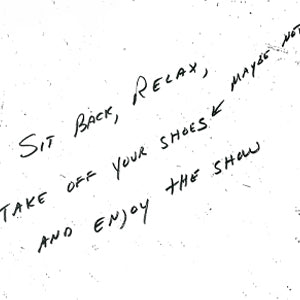 SIT BACK, RELAX,
TAKE OFF YOUR SHOES ← MAYBE NOT
AND ENJOY THE SHOW